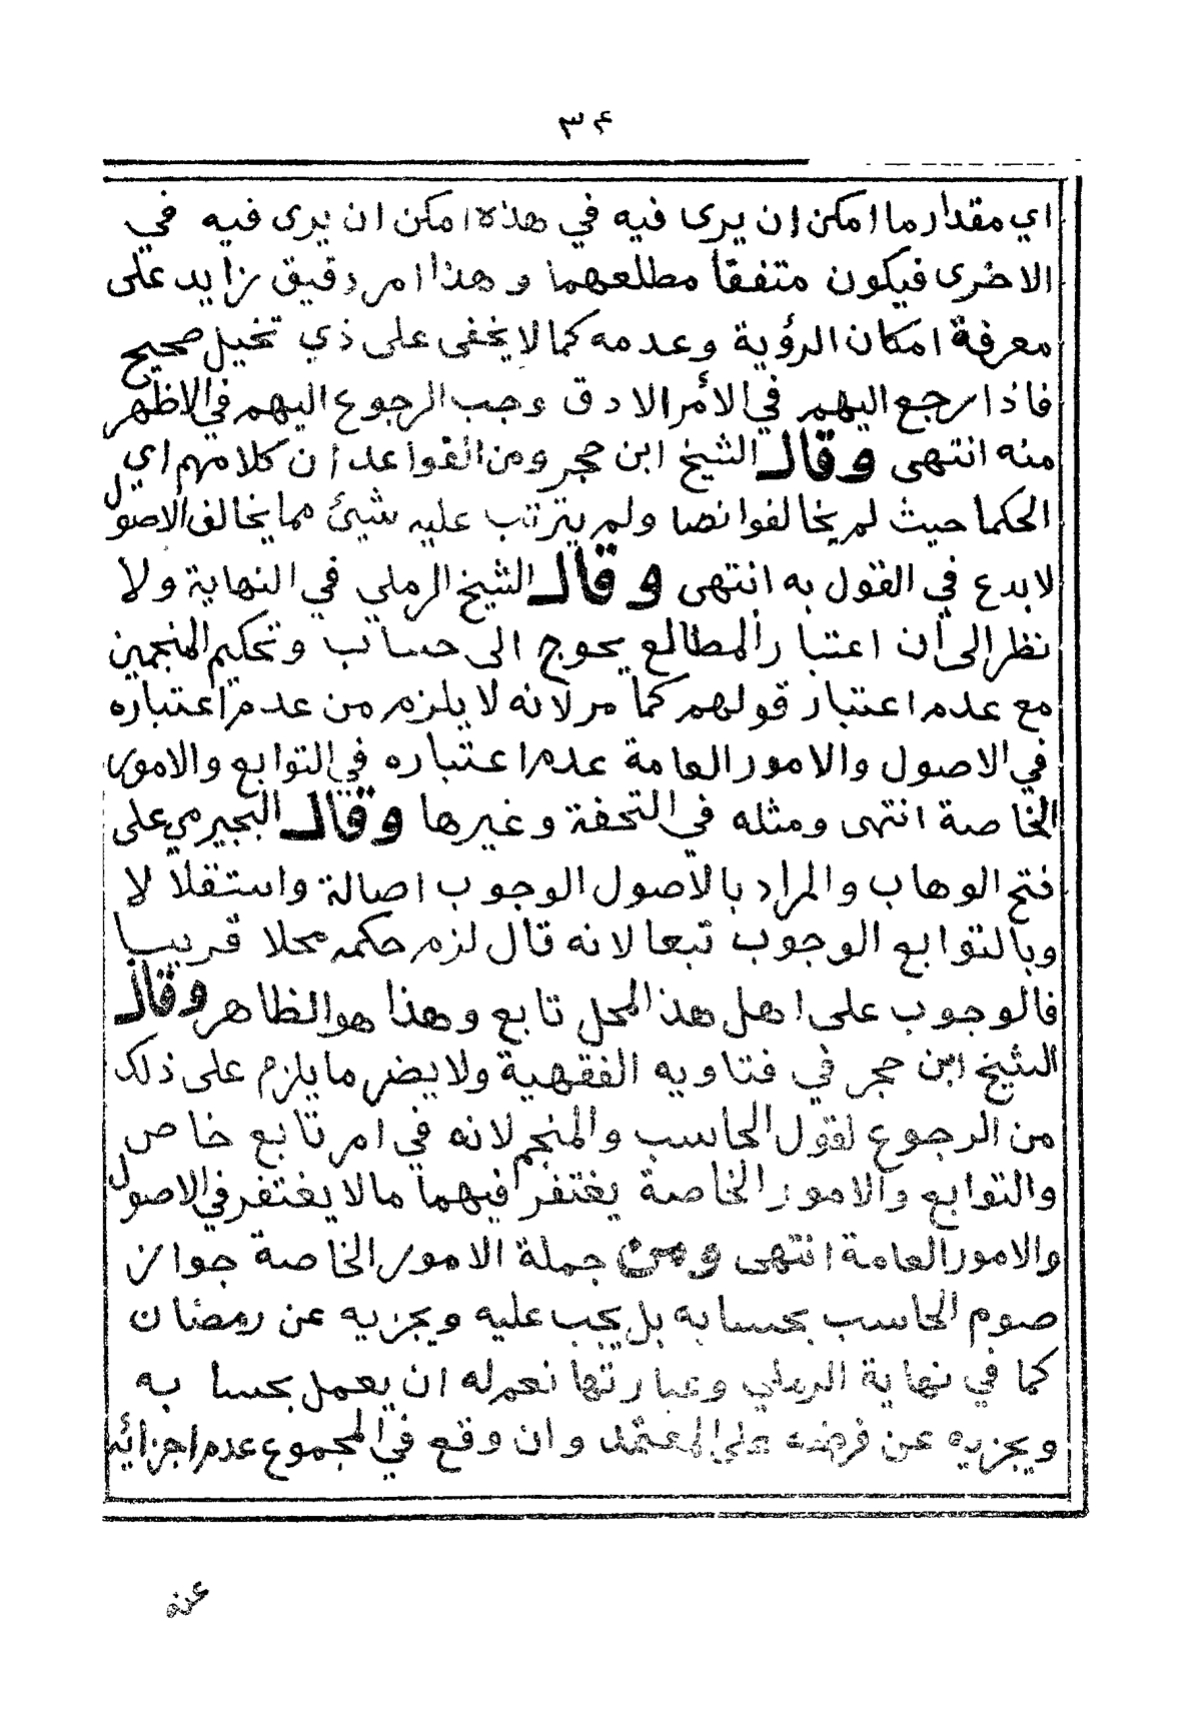 ٣٤
اي مقدار ما امكن ان يرى فيه في هذه امكن ان يرى فيه في
الاخرى فيكون متفقا مطلعهما وهذا امر دقيق زايد على
معرفة امكان الرؤية وعدمه كما لا يخفى على ذي تخيل صحيح
فاذا رجع اليهم في الأمر الادق وجب الرجوع اليهم في الاظهر
منه انتهى وقال الشيخ ابن حجر ومن القواعد ان كلامهم اي
الحكما حيث لم يخالفوا نصا ولم يترتب عليه شيئ مما يخالف الاصول
لا بدع في القول به انتهى وقال الشيخ الرملي في النهاية ولا
نظر الى أن اعتبار المطالع يحوج الى حساب وتحكيم المنجمين
مع عدم اعتبار قولهم كما مر لانه لا يلزم من عدم اعتباره
في الاصول والامور العامة عدم اعتباره في التوابع والامور
الخاصة انتهى ومثله في التحفة وغيرها وقال البجيرمي على
فتح الوهاب والمراد بالأصول الوجوب اصالة واستقلالا
وبالتوابع الوجوب تبعا لانه قال لزم حكمه محلا قريبا
فالوجوب على اهل هذ المحل تابع وهذا هو الظاهر وقال
الشيخ ابن حجر في فتاويه الفقهية ولا يضر ما يلزم على ذلك
من الرجوع لقول الحاسب والمنجم لانه في امر تابع خاص
والتوابع والامور الخاصة يغتفر فيهما مالا يغتفر في الاصول
والامور العامة انتهى ومن جملة الامور الخاصة جواز
صوم الحاسب بحسابه بل يجب عليه ويجزيه عن رمضان
كما في نهاية الرملي وعبارتها نعم له ان يعمل بحسابه
ويجزيه عن فرضه على المعتمد وان وقع في المجموع عدم اجزائه
عنه